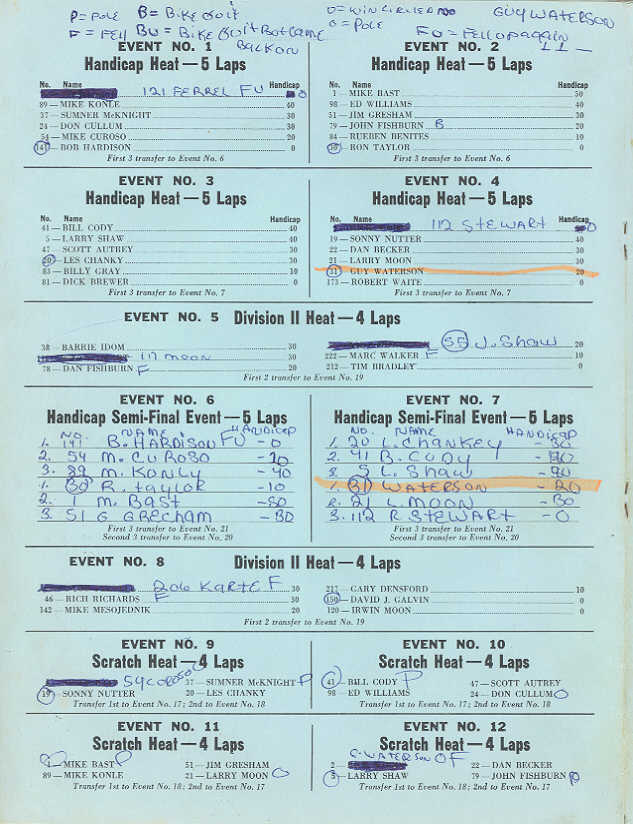 P=POLE B=BIKE QUIT O=WINCIRLED NO GUY WATERSON
F=FELL BU=BIKE QUIT BUT CAME O=POLE FU=FELLUPAGAIN
BACK ON
EVENT NO. 1
Handicap Heat—5 Laps
No. Name Handicap
121 FERREL FU 0
89—MIKE KONLE 40
37—SUMNER McKNIGHT 30
24—DON CULLUM 30
54—MIKE CUROSO 20
141—BOB HARDISON 0
First 3 transfer to Event No. 6
EVENT NO. 2
Handicap Heat—5 Laps
No. Name Handicap
1—MIKE BAST 50
98—ED WILLIAMS 40
51—JIM GRESHAM 30
79—JOHN FISHBURN B 20
84—RUEBEN BENITES 10
RON TAYLOR 0
First 3 transfer to Event No. 6
EVENT NO. 3
Handicap Heat—5 Laps
No. Name Handicap
41—BILL CODY 40
5—LARRY SHAW 40
47—SCOTT AUTREY 30
20—LES CHANKY 30
83—BILLY GRAY 10
81—DICK BREWER 0
First 3 transfer to Event No. 7
EVENT NO. 4
Handicap Heat—5 Laps
No. Name Handicap
112 STEWART 0
19—SONNY NUTTER 40
22—DAN BECKER 30
21—LARRY MOON 30
31—GUY WATERSON 20
173—ROBERT WAITE 0
First 3 transfer to Event No. 7
EVENT NO. 5 Division II Heat—4 Laps
38—BARRIE IDOM 30
117 MOON 30
78—DAN FISHBURN F 20
55 J. Shaw 20
222—MARC WALKER F 10
212—TIM BRADLEY 0
First 2 transfer to Event No. 19
EVENT NO. 6
Handicap Semi-Final Event—5 Laps
NO. NAME HANDICAP
1. 141 B. HARDISON FU -0
2. 54 M. CUROSO -20
3. 89 M. KONLY -40
1. R. TAYLOR -10
2. 1 M. BAST -50
3. 51 G GRECHAM -30
First 3 transfer to Event No. 21
Second 3 transfer to Event No. 20
EVENT NO. 7
Handicap Semi-Final Event—5 Laps
NO. NAME HANDICAP
1. 20 L. CHANKEY -30
2. 41 B. CODY -40
3. 5 L. SHAW -40
1. 31 WATERSON -20
2. 21 L. MOON -30
3. 112 R. STEWART -0
First 3 transfer to Event No. 21
Second 3 transfer to Event No. 20
EVENT NO. 8 Division II Heat—4 Laps
206 KARTE F 30
46—RICH RICHARDS F 30
142—MIKE MESOJEDNIK 20
217—GARY DENSFORD 10
150—DAVID J. GALVIN 0
120—IRWIN MOON 0
First 2 transfer to Event No. 19
EVENT NO. 9
Scratch Heat—4 Laps
54 COROSO 37—SUMNER McKNIGHT P
19—SONNY NUTTER 20—LES CHANKY
Transfer 1st to Event No. 17; 2nd to Event No. 18
EVENT NO. 10
Scratch Heat—4 Laps
41 BILL CODY P 47—SCOTT AUTREY
98—ED WILLIAMS 24—DON CULLUM O
Transfer 1st to Event No. 17; 2nd to Event No. 18
EVENT NO. 11
Scratch Heat—4 Laps
1—MIKE BAST P 51—JIM GRESHAM
89—MIKE KONLE 21—LARRY MOON O
Transfer 1st to Event No. 18; 2nd to Event No. 17
EVENT NO. 12
Scratch Heat—4 Laps
G. WATERSON OF
2— 22—DAN BECKER
5—LARRY SHAW 79—JOHN FISHBURN P
Transfer 1st to Event No. 18; 2nd to Event No. 17